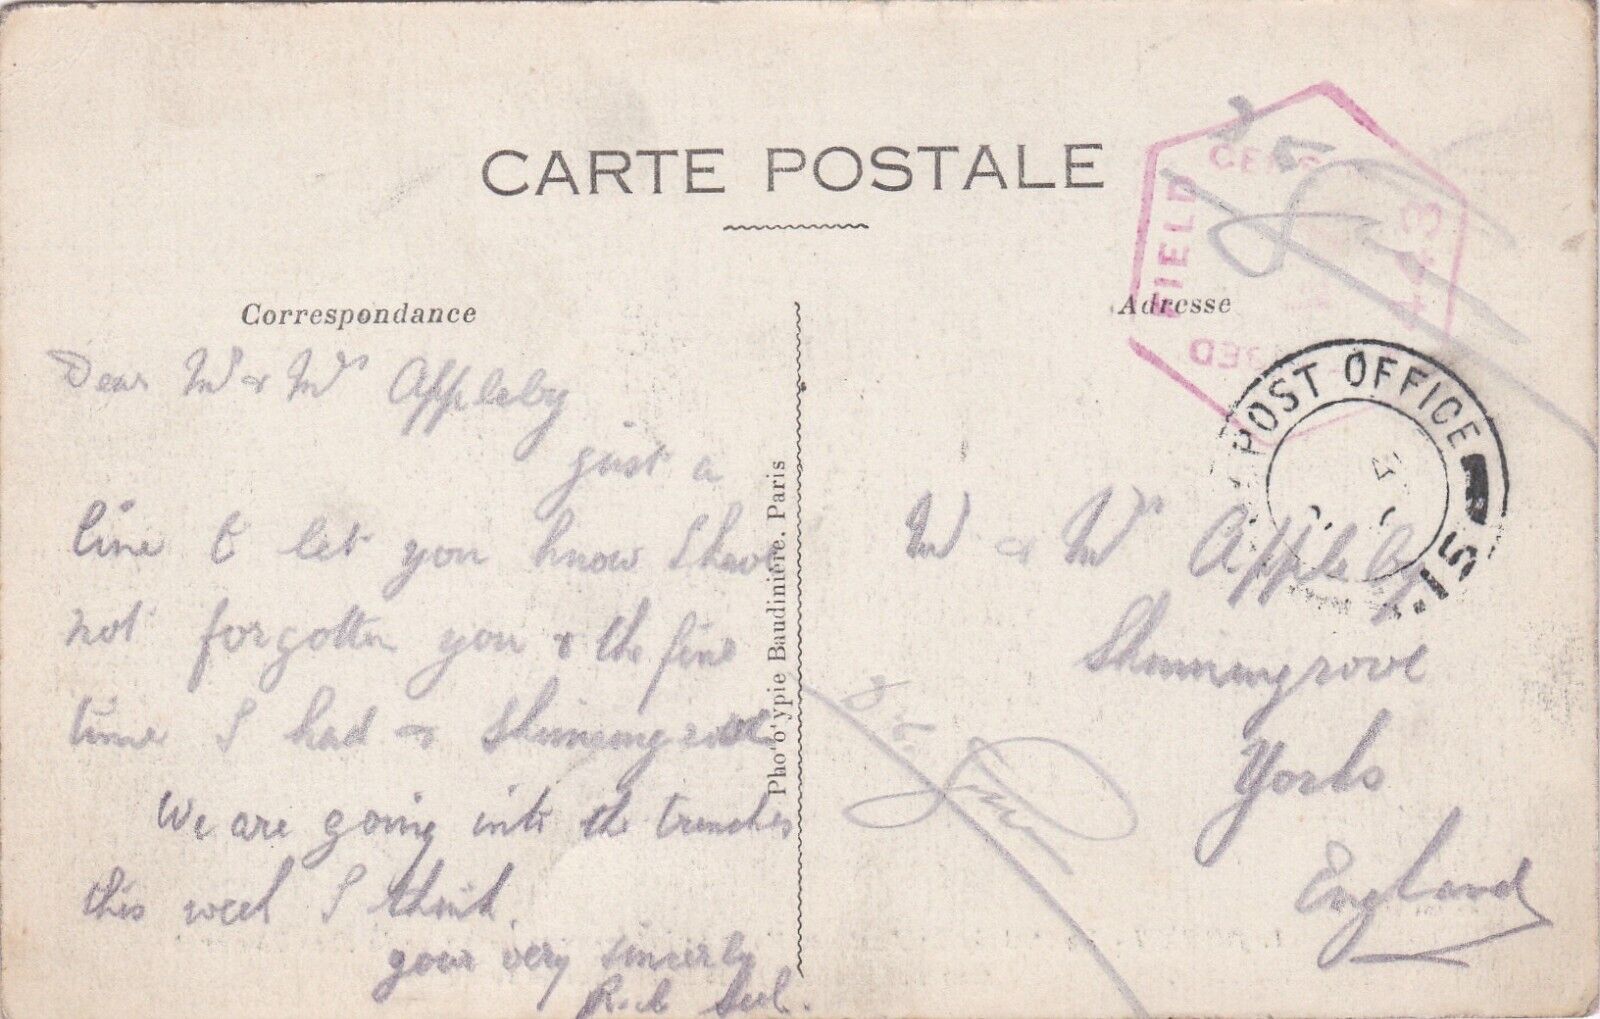 CARTE POSTALE
Correspondance
Dear Mr & Mrs Appleby
just a
line to let you know I have
not forgotten you & the fine
time I had at Skinningrove
We are going into the trenches
this week I think.
your very sincerely
R.
Pho'o'ypie Baudinière, Paris
Adresse
FIELD
443
POST OFFICE
15
Mr & Mrs Appleby
Skinningrove
Yorks
England